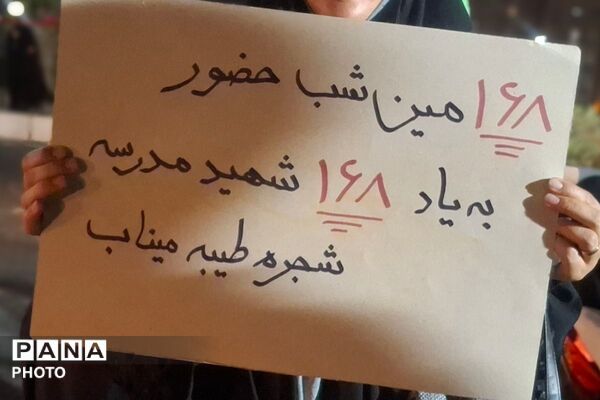 ۱۶۸ مین شب حضور
به یاد ۱۶۸ شهید مدرسه
شجره طیبه میناب
PANA
PHOTO